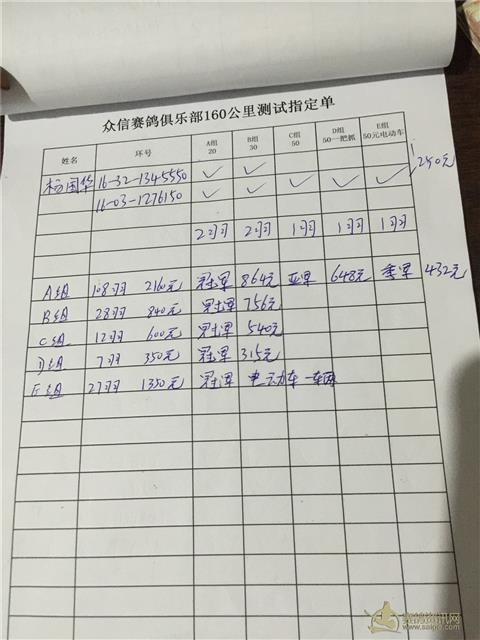 众信赛鸽俱乐部160公里测试指定单
姓名 环号 A组 20 B组 30 C组 50 D组 50一把抓 E组 50元电动车
杨国华 16-32-1345550 ✓ ✓
16-03-1276150 ✓ ✓ ✓ ✓ ✓ 250元
2羽 2羽 1羽 1羽 1羽
A组 108羽 2160元 冠军 864元 亚军 648元 季军 432元
B组 28羽 840元 冠军 756元
C组 12羽 600元 冠军 540元
D组 7羽 350元 冠军 315元
E组 27羽 1350元 冠军 电动车一辆
赛鸽资讯网
www.saige.com